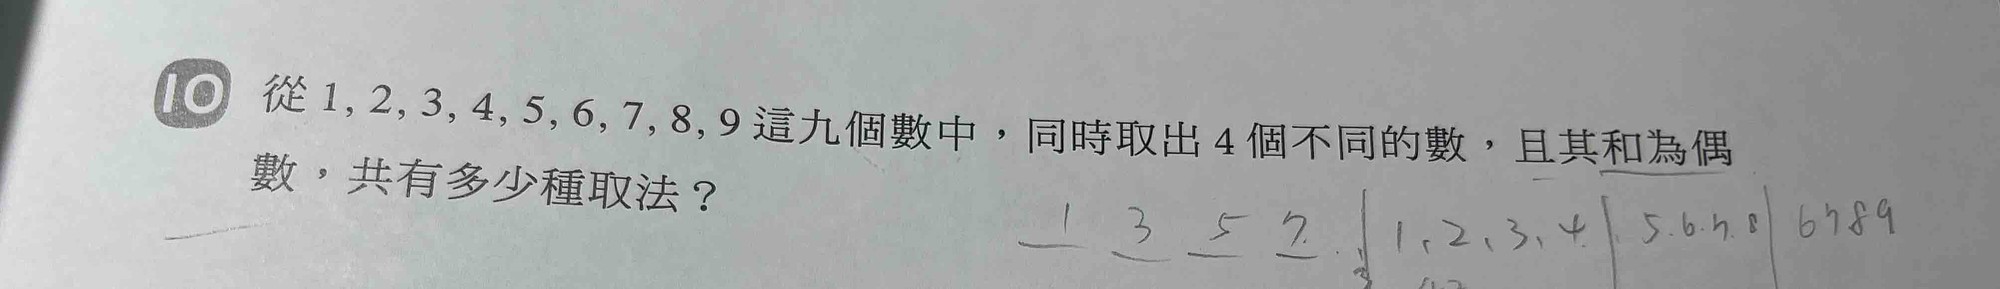 10 從 1, 2, 3, 4, 5, 6, 7, 8, 9 這九個數中，同時取出 4 個不同的數，且其和為偶
數，共有多少種取法？
1 3 5 7 | 1、2、3、4 | 5.6.7.8 | 6789